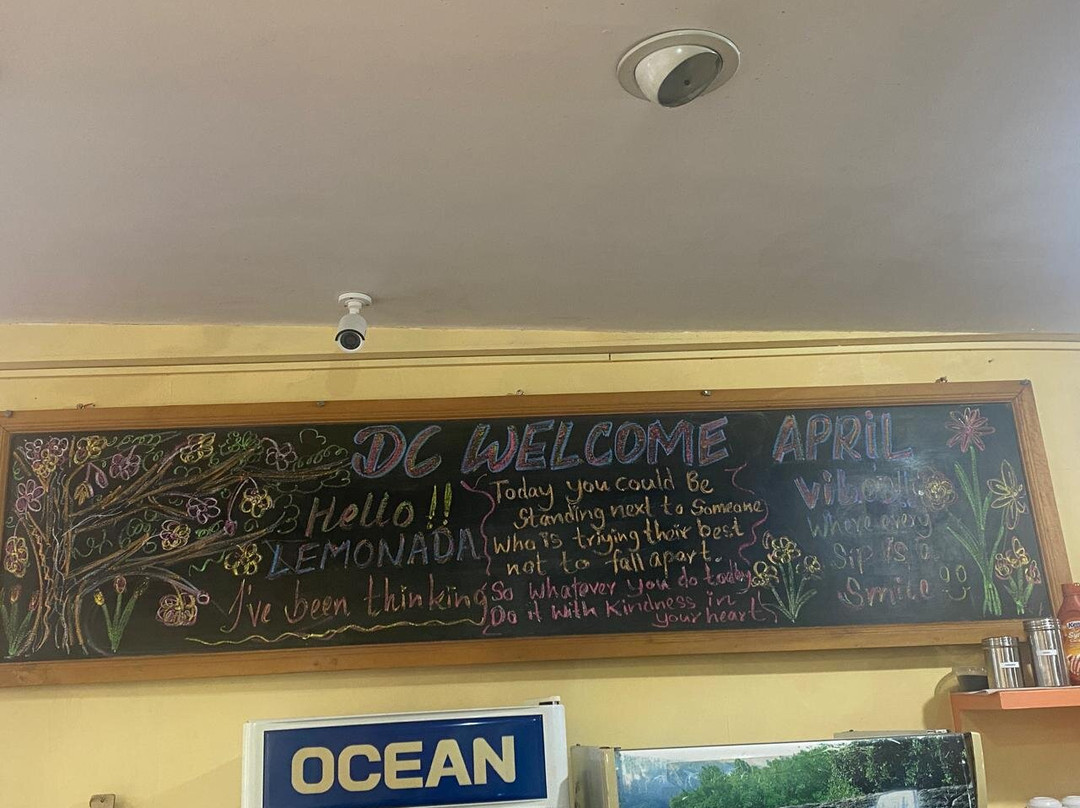 DC WELCOME APRIL
Hello !!
LEMONADA
I've been thinking
Today you could Be
Standing next to Someone
Who is triying their best
not to fall apart.
So Whatever you do today
Do it With Kindness in
your heart.
Where every
Sip is a
Smile
OCEAN